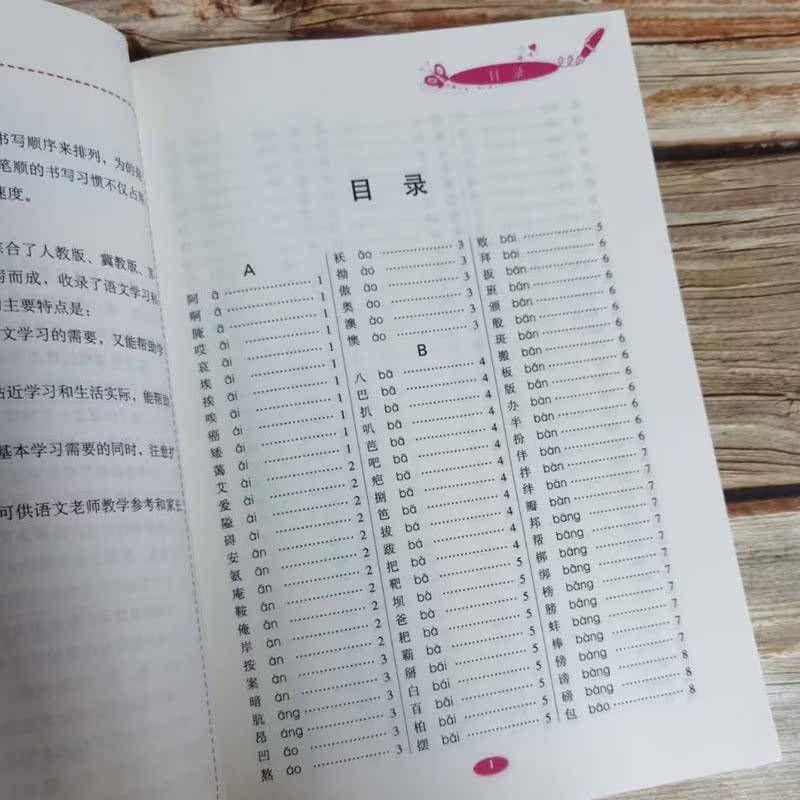 书写顺序来排列，为的是
笔顺的书写习惯不仅占
速度。
综合了人教版、冀教版、
而成，收录了语文学习
主要特点是：
文学习的需要，又能帮助学
贴近学习和生活实际，能帮
基本学习需要的同时，注意扩
可供语文老师教学参考和家长
目 录
目 录
A
阿 ā 1
啊 ā 1
腌 ā 1
哎 āi 1
哀 āi 1
埃 āi 1
挨 āi 1
唉 āi 1
癌 ái 1
矮 ǎi 1
蔼 ǎi 1
艾 ài 2
爱 ài 2
隘 ài 2
碍 ài 2
安 ān 2
氨 ān 2
庵 ān 2
鞍 ān 2
俺 ǎn 2
岸 àn 2
按 àn 2
案 àn 3
暗 àn 3
肮 āng 3
昂 áng 3
凹 āo 3
熬 áo 3
袄 ǎo 3
拗 ào 3
傲 ào 3
奥 ào 3
澳 ào 3
懊 ào 3
B
八 bā 4
巴 bā 4
扒 bā 4
叭 bā 4
芭 bā 4
吧 bā 4
疤 bā 4
捌 bā 4
笆 bā 4
拔 bá 4
跋 bá 4
把 bǎ 4
靶 bǎ 5
坝 bà 5
爸 bà 5
耙 bà 5
霸 bà 5
掰 bāi 5
白 bái 5
百 bǎi 5
柏 bǎi 5
摆 bǎi 5
败 bài 5
拜 bài 6
扳 bān 6
班 bān 6
颁 bān 6
般 bān 6
斑 bān 6
搬 bān 6
板 bǎn 6
版 bǎn 6
办 bàn 6
半 bàn 6
扮 bàn 6
伴 bàn 6
拌 bàn 7
绊 bàn 7
瓣 bàn 7
邦 bāng 7
帮 bāng 7
梆 bāng 7
绑 bǎng 7
榜 bǎng 7
膀 bǎng 7
蚌 bàng 7
棒 bàng 7
傍 bàng 7
谤 bàng 8
磅 bàng 8
包 bāo 8
1